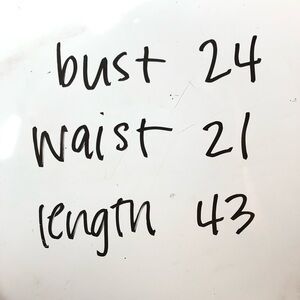 bust 24
waist 21
length 43